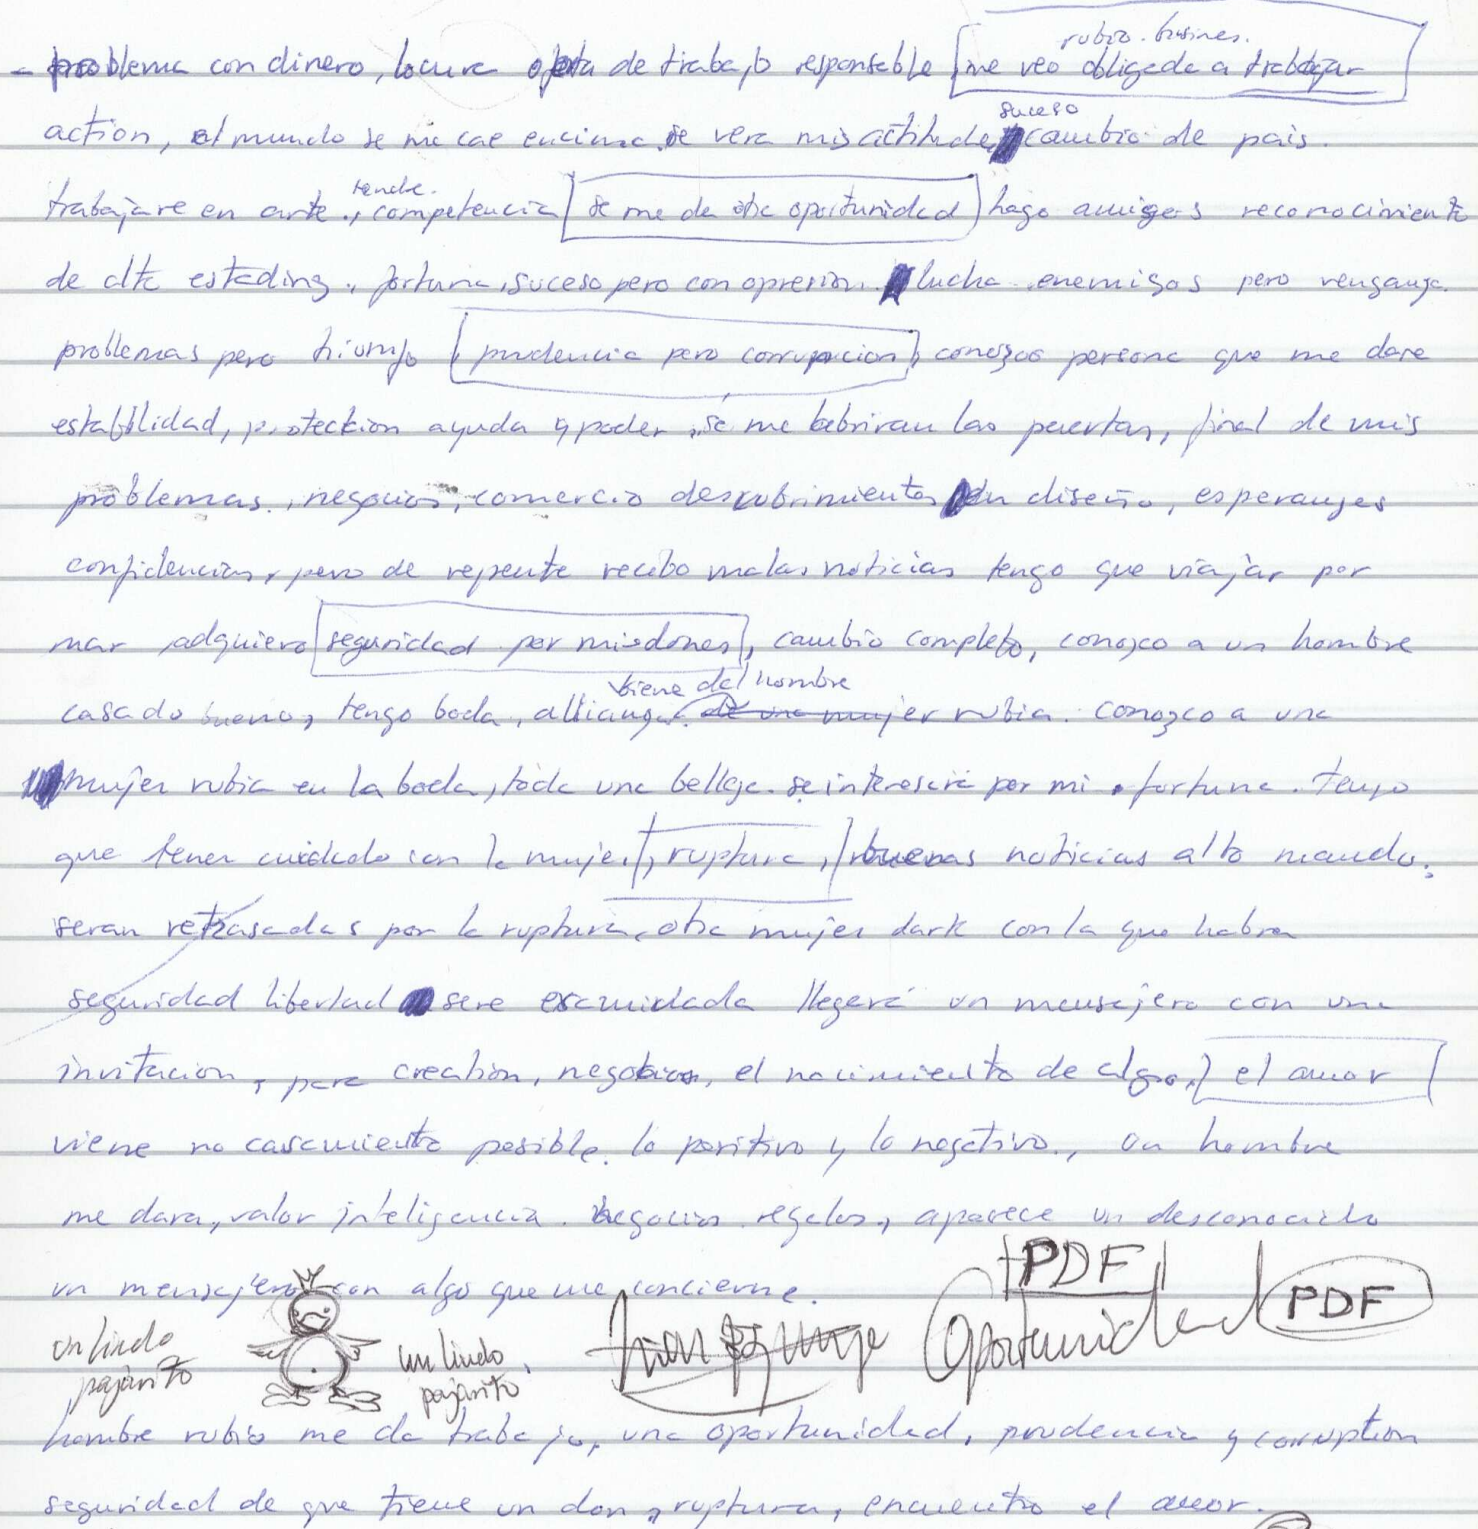 rubio. busines.
- problema con dinero, locura oferta de trabajo responsable [me veo obligada a trabajar]
suceso
action, el mundo se me cae encima. se vera mis actitudes cambio de pais.
tendre.
trabajare en arte., competencia [se me da otra oportunidad] hago amigos reconocimiento
de alto estading., fortuna, suceso pero con opresion. lucha enemigos pero venganza.
problemas pero triunfo [prudencia pero corrupcion], conozco persona que me dara
estabilidad, proteckion ayuda y poder, se me habriran las puertas, final de mis
problemas., negocios, comercio descubrimientos en diseño, esperanzas
confidencias, pero de repente recibo malas noticias tengo que viajar por
mar adquiero [seguridad por mis dones], cambio completo, conozco a un hombre
viene del hombre
casado bueno, tengo boda, allianza. de una mujer rubia. conozco a una
mujer rubia en la boda, toda una belleza. se interesara por mi fortuna. tengo
que tener cuidado con la mujer, [ruptura,] buenas noticias alto mando.
seran retrasadas por la ruptura, otra mujer dark con la que habra
seguridad libertad sere llegará un mensajero con una
invitacion, para creation, negocios, el nacimiento de algo, [el amor]
viene no casamiento posible. lo positivo y lo negativo., un hombre
me dara, valor inteligencia. negocios regalos, aparece un desconocido
un mensajero con algo que me concierne.
PDF
un lindo pajarito
un lindo pajarito
Oportunidad PDF
hombre rubio me da trabajo, una oportunidad, prudencia y corruption
seguridad de que tiene un don, ruptura, encuentro el amor.